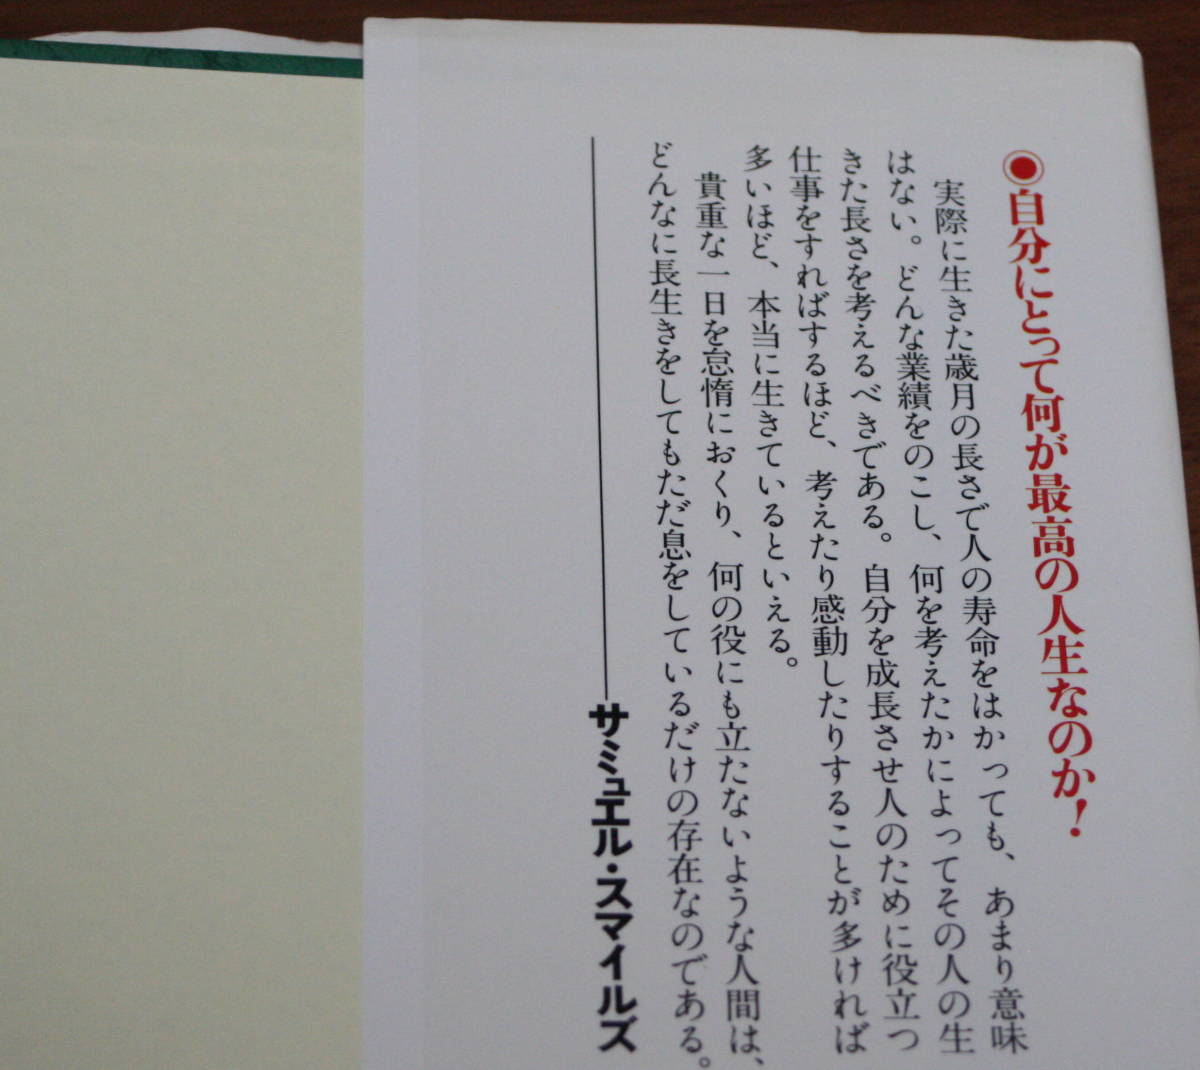 ◉自分にとって何が最高の人生なのか!
実際に生きた歳月の長さで人の寿命をはかっても、あまり意味
はない。どんな業績をのこし、何を考えたかによってその人の生
きた長さを考えるべきである。自分を成長させ人のために役立つ
仕事をすればするほど、考えたり感動したりすることが多ければ
多いほど、本当に生きているといえる。
貴重な一日を怠惰におくり、何の役にも立たないような人間は、
どんなに長生きをしてもただ息をしているだけの存在なのである。
――サミュエル・スマイルズ